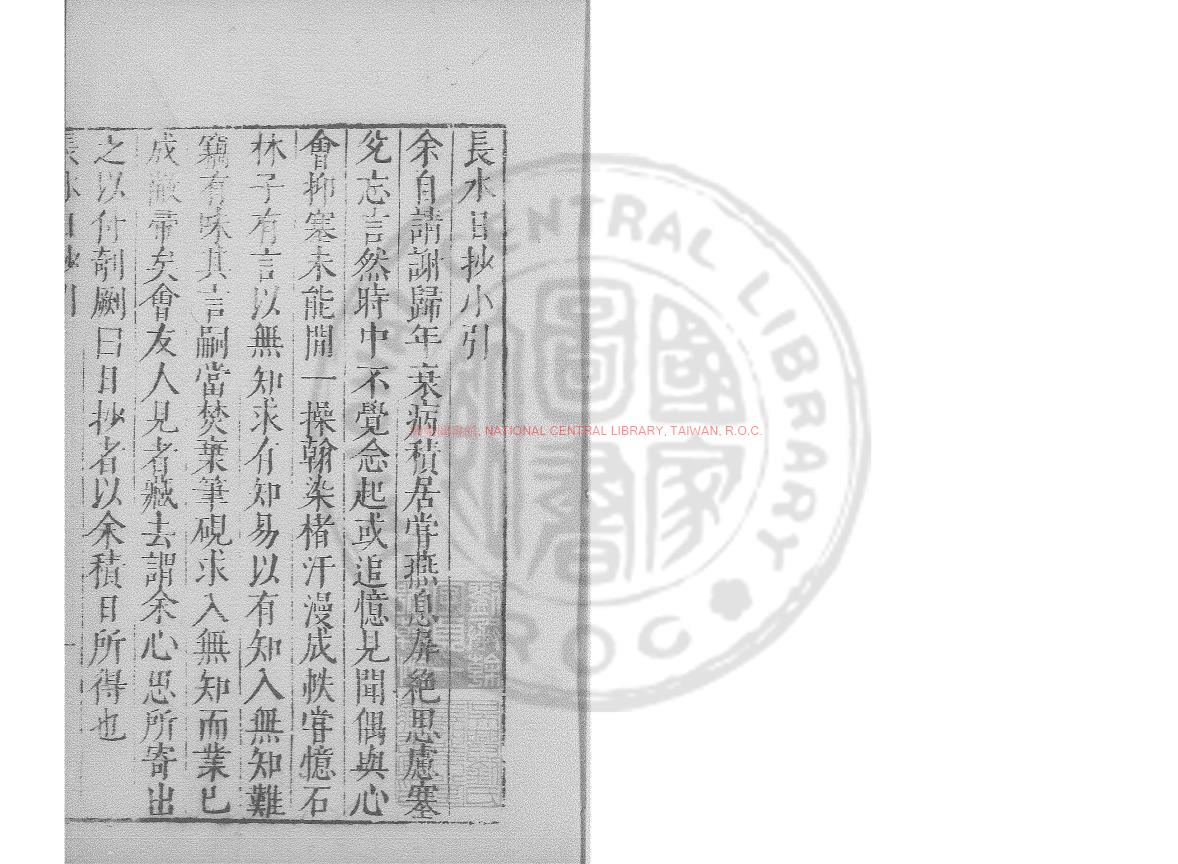 長水日抄小引
余自請謝歸年衰病積居甞燕息屏絶思慮塞
兊忘言然時中不覺念起或追憶見聞偶與心
會抑塞未能閒一操翰染楮汗漫成帙甞憶石
林子有言以無知求有知易以有知入無知難
竊有味其言嗣當焚棄筆硯求入無知而業已
成敝帚矣會友人見者藏去謂余心思所寄出
之以付剞劂曰日抄者以余積日所得也
長水日抄引
一
NATIONAL CENTRAL LIBRARY, TAIWAN, R.O.C.
CENTRAL LIBRARY
R.O.C.
國家圖書館